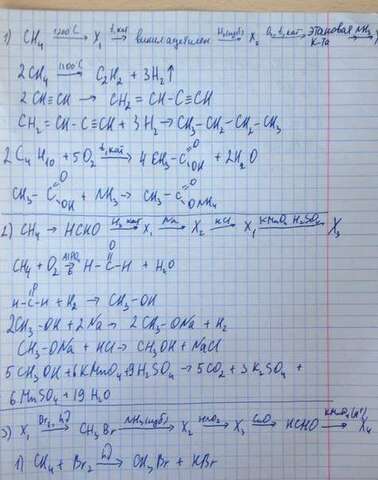 1) CH₄ →(1200°C) X₁ →(t, кат) винилацетилен →(H₂(изб)) X₂ →(O₂, t, кат) этановая к-та →(NH₃)
2CH₄ →(1200°C) C₂H₂ + 3H₂↑
2CH≡CH → CH₂=CH-C≡CH
CH₂=CH-C≡CH + 3H₂ → CH₃-CH₂-CH₂-CH₃
2C₄H₁₀ + 5O₂ →(t, кат) 4CH₃-C(=O)OH + 2H₂O
CH₃-C(=O)OH + NH₃ → CH₃-C(=O)ONH₄
2) CH₄ → HCHO →(H₂ кат) X₁ →(Na) X₂ →(HCl) X₁ →(KMnO₄ H₂SO₄) X₃
CH₄ + O₂ →(AlPO₄, t) H-C(=O)-H + H₂O
H-C(=O)-H + H₂ → CH₃-OH
2CH₃-OH + 2Na → 2CH₃-ONa + H₂
CH₃-ONa + HCl → CH₃OH + NaCl
5CH₃OH + 6KMnO₄ + 9H₂SO₄ → 5CO₂ + 3K₂SO₄ +
6MnSO₄ + 19H₂O
3) X₁ →(Br₂, hν) CH₃Br →(NH₃(изб)) X₂ →(HNO₂) X₃ →(CuO) HCHO →(KMnO₄(H⁺)) X₄
1) CH₄ + Br₂ →(hν) CH₃Br + HBr